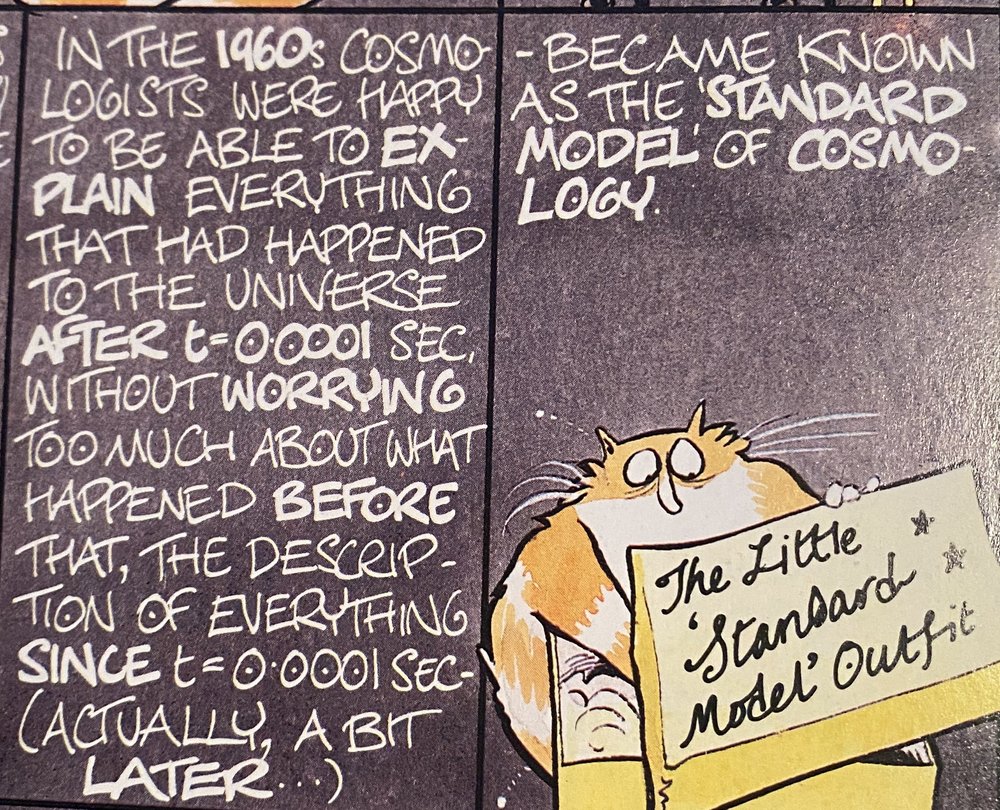 IN THE 1960s COSMO-
LOGISTS WERE HAPPY
TO BE ABLE TO EX-
PLAIN EVERYTHING
THAT HAD HAPPENED
TO THE UNIVERSE
AFTER t=0·0001 SEC,
WITHOUT WORRYING
TOO MUCH ABOUT WHAT
HAPPENED BEFORE
THAT, THE DESCRIP-
TION OF EVERYTHING
SINCE t=0·0001 SEC-
(ACTUALLY, A BIT
LATER...)
-BECAME KNOWN
AS THE 'STANDARD
MODEL' OF COSMO-
LOGY.
The Little
'Standard
Model' Outfit